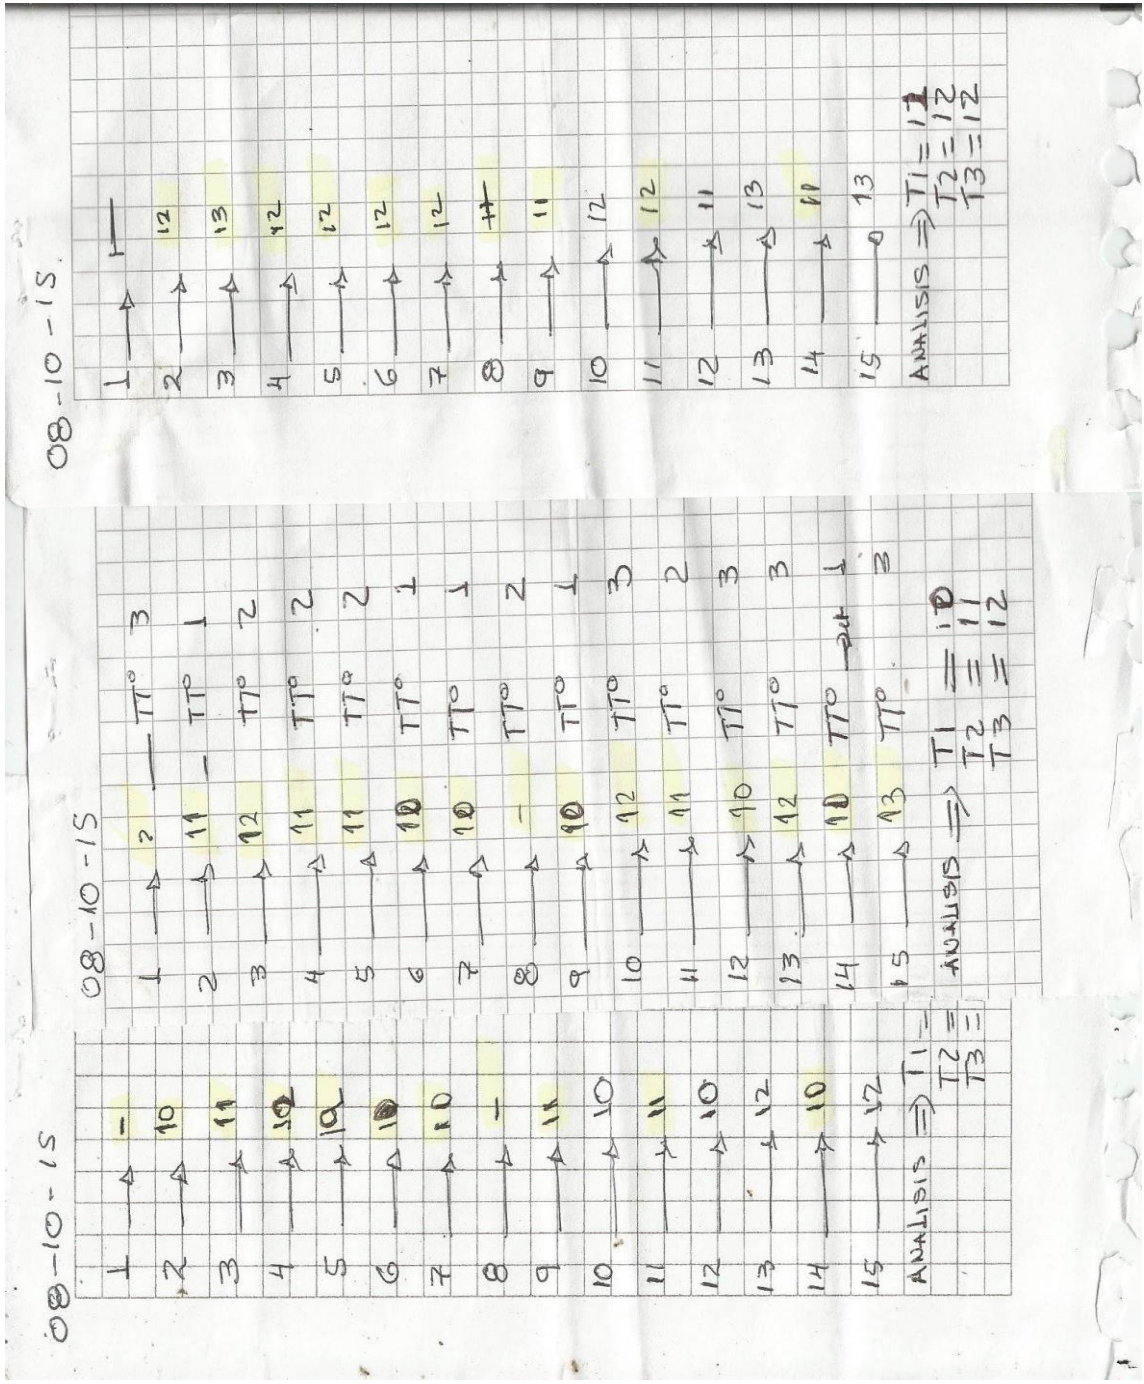 08-10-15
1 → -
2 → 10
3 → 11
4 →
5 →
6 → 10
7 → 10
8 → -
9 → 11
10 → 10
11 → 11
12 → 10
13 → 12
14 → 10
15 → 12
ANALISIS ⇒ T1 =
T2 =
T3 =
08-10-15
1 → ? — TT° 3
2 → 11 - TT° 1
3 → 12 TT° 2
4 → 11 TT° 2
5 → 11 TT° 2
6 → 10 TT° 1
7 → 10 TT° 1
8 → - TT° 2
9 → 10 TT° 1
10 → 12 TT° 3
11 → 11 TT° 2
12 → 10 TT° 3
13 → 12 TT° 3
14 → 10 TT° → 1
15 → 13 TT° 3
ANALISIS ⇒ T1 = 10
T2 = 11
T3 = 12
08-10-15
1 → —
2 → 12
3 → 13
4 → 12
5 → 12
6 → 12
7 → 12
8 → 11
9 → 11
10 → 12
11 → 12
12 → 11
13 → 13
14 → 11
15 → 13
ANALISIS ⇒ T1 = 11
T2 = 12
T3 = 12